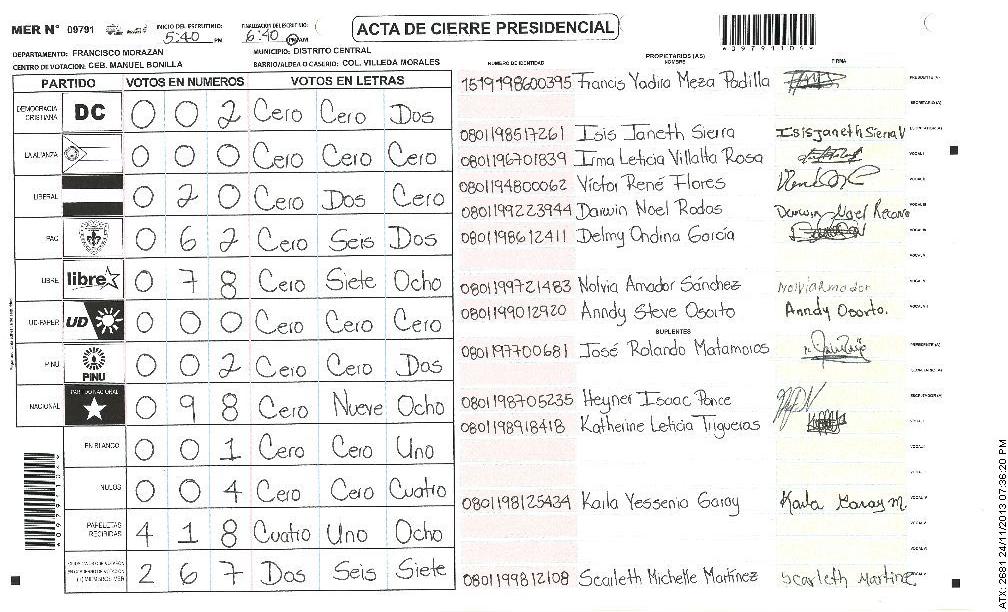 MER N° 09791
INICIO DEL ESCRUTINIO: 5:40 PM
FINALIZACION DEL ESCRUTINIO: 6:40 PM/AM
ACTA DE CIERRE PRESIDENCIAL
DEPARTAMENTO: FRANCISCO MORAZAN
MUNICIPIO: DISTRITO CENTRAL
CENTRO DE VOTACION: CEB. MANUEL BONILLA
BARRIO/ALDEA O CASERIO: COL. VILLEDA MORALES
PARTIDO VOTOS EN NUMEROS VOTOS EN LETRAS
DEMOCRACIA CRISTIANA DC 0 0 2 Cero Cero Dos
LA ALIANZA 0 0 0 Cero Cero Cero
LIBERAL 0 2 0 Cero Dos Cero
PAC 0 6 2 Cero Seis Dos
LIBRE libre 0 7 8 Cero Siete Ocho
UD-FAPER UD 0 0 0 Cero Cero Cero
PINU PINU 0 0 2 Cero Cero Dos
NACIONAL PARTIDO NACIONAL 0 9 8 Cero Nueve Ocho
EN BLANCO 0 0 1 Cero Cero Uno
NULOS 0 0 4 Cero Cero Cuatro
PAPELETAS RECIBIDAS 4 1 8 Cuatro Uno Ocho
2 6 7 Dos Seis Siete
PROPIETARIOS (AS)
NUMERO DE IDENTIDAD NOMBRE FIRMA
1519198600395 Francis Yadira Meza Padilla PRESIDENTE (A)
SECRETARIO (A)
0801198517261 Isis Janeth Sierra Isis janeth Sierra V ESCRUTADOR (A)
0801196701839 Irma Leticia Villalta Rosa VOCAL I
0801194800062 Víctor René Flores VOCAL II
0801199223944 Darwin Noel Rodas Darwin Noel VOCAL III
0801198612411 Delmy Ondina García VOCAL IV
VOCAL V
0801199721483 Nolvia Amador Sánchez Nolvia Amador
0801199012920 Anndy Steve Osorto Anndy Osorto.
SUPLENTES
0801197700681 José Rolando Matamoros PRESIDENTE (A)
SECRETARIO (A)
0801198705235 Heyner Isaac Ponce ESCRUTADOR (A)
0801198918418 Katherine Leticia Trigueros VOCAL I
0801198125434 Karla Yessenia Garay Karla Garay M.
0801199812108 Scarleth Michelle Martínez Scarleth Martinez
ATX: 2681 24/11/2013 07:36:20 PM